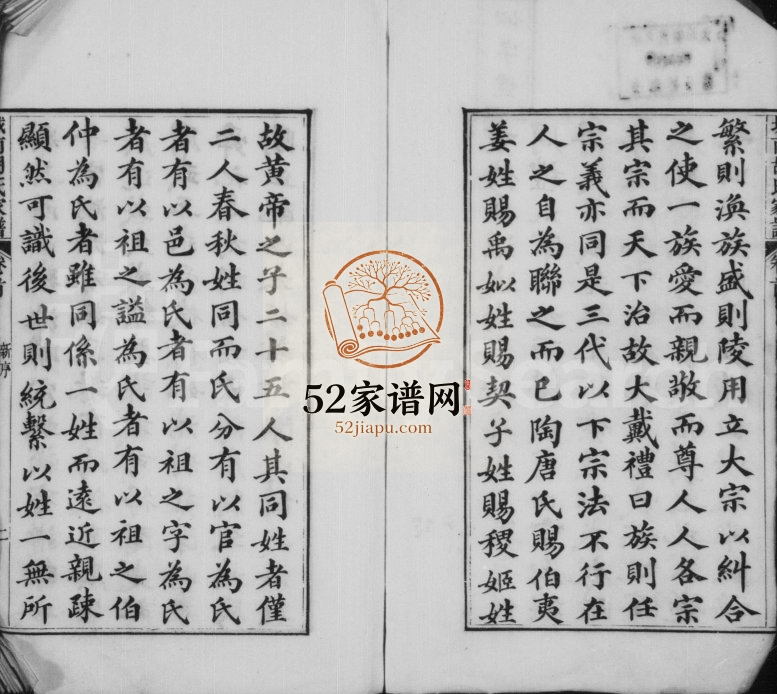 繁則渙族盛則陵用立大宗以糾合
之使一族愛而親敬而尊人人各宗
其宗而天下治故大戴禮曰族則任
宗義亦同是三代以下宗法不行在
人之自為聯之而已陶唐氏賜伯夷
姜姓賜禹姒姓賜契子姓賜稷姬姓
故黃帝之子二十五人其同姓者僅
二人春秋姓同而氏分有以官為氏
者有以邑為氏者有以祖之字為氏
者有以祖之謚為氏者有以祖之伯
仲為氏者雖同係一姓而遠近親疎
顯然可識後世則統繫以姓一無所
新序
52家谱网
52jiapu.com